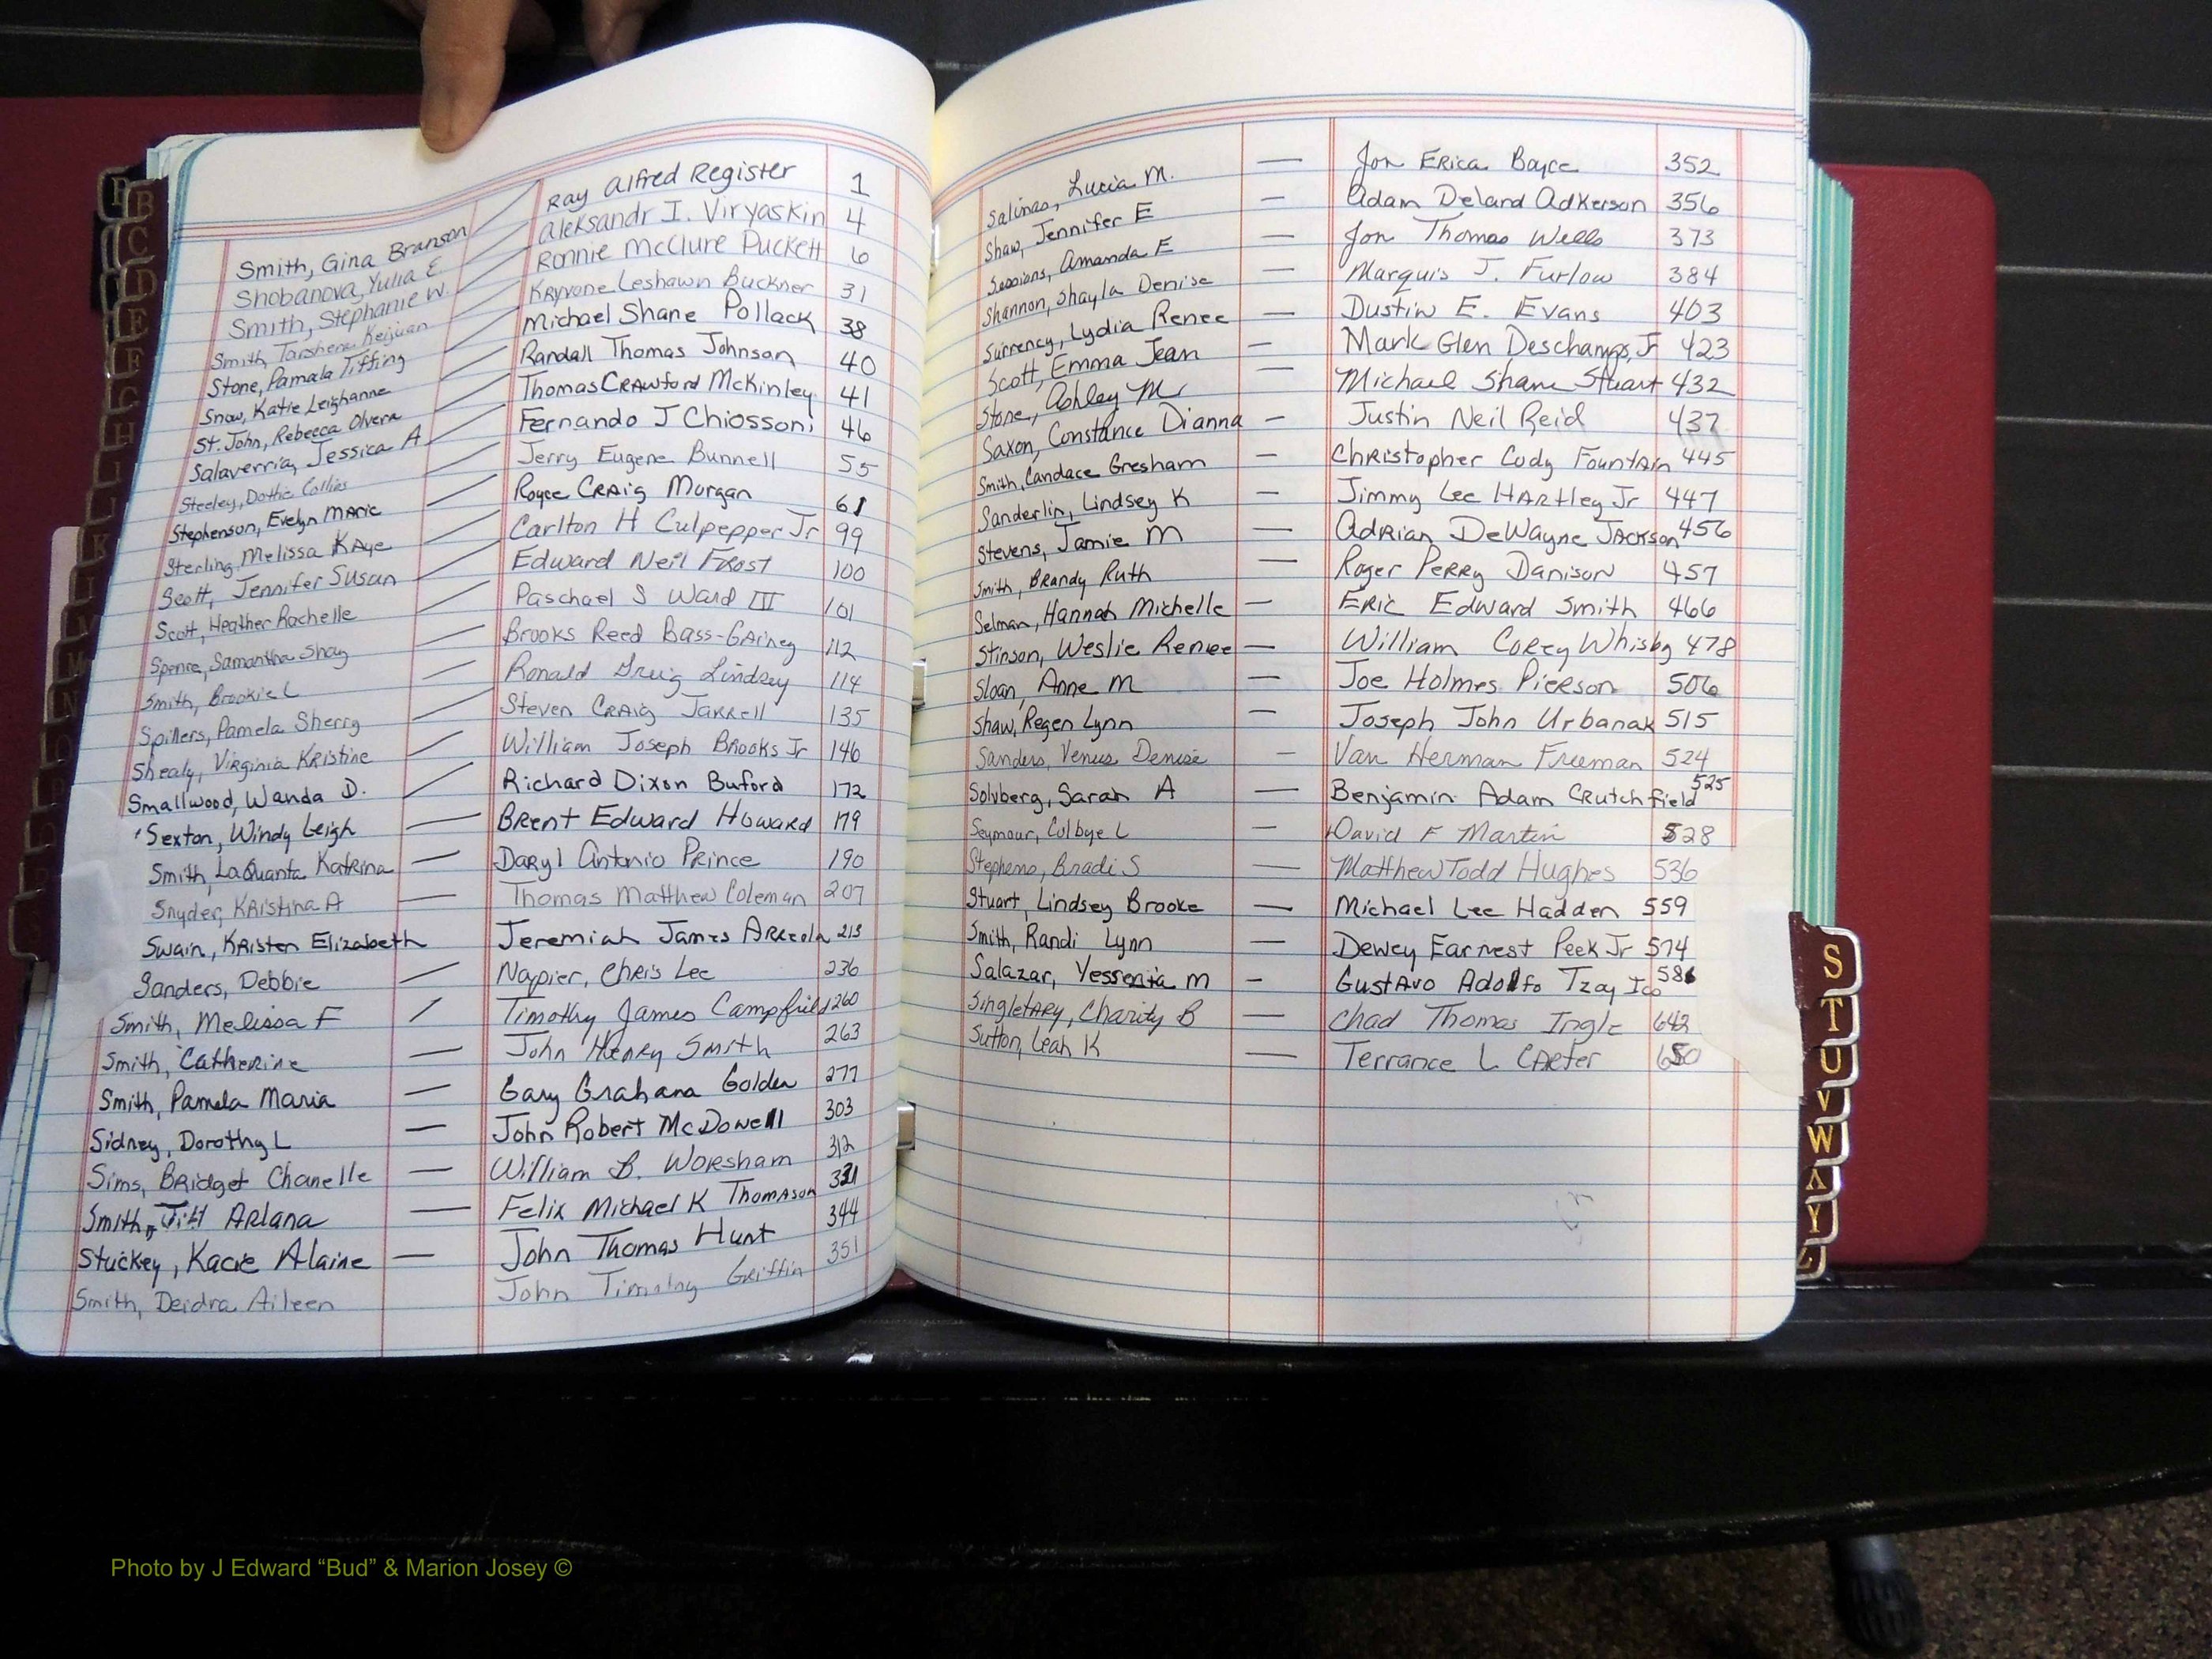 Smith, Gina Branson — Ray Alfred Register 1
Shobanova, Yulia E. — Aleksandr I. Viryaskin 4
Smith, Stephanie W. — Ronnie McClure Puckett 6
Smith, Tarshena Keijuan — Kryvone Leshawn Buckner 31
Stone, Pamala Tiffiny — Michael Shane Pollack 38
Snow, Katie Leighanne — Randall Thomas Johnson 40
St. John, Rebecca Olvera — Thomas Crawford McKinley 41
Salaverria, Jessica A — Fernando J Chiossoni 46
Steeley, Dottie Collins — Jerry Eugene Bunnell 55
Stephenson, Evelyn Marie — Royce Craig Morgan 61
Sterling, Melissa Kaye — Carlton H Culpepper Jr 99
Scott, Jennifer Susan — Edward Neil Frost 100
Scott, Heather Rachelle — Paschael S Ward III 101
Spence, Samantha Shay — Brooks Reed Bass-Gainey 112
Smith, Brookie L — Ronald Greig Lindsey 114
Spillers, Pamela Sherry — Steven Craig Jarrell 135
Shealy, Virginia Kristine — William Joseph Brooks Jr 146
Smallwood, Wanda D. — Richard Dixon Buford 172
Sexton, Windy Leigh — Brent Edward Howard 179
Smith, LaQuanta Katrina — Daryl Antonio Prince 190
Snyder, Kristina A — Thomas Matthew Coleman 207
Swain, Kristen Elizabeth Jeremiah James Arreola 213
Sanders, Debbie — Naypier, Chris Lee 236
Smith, Melissa F — Timothy James Campfield 260
Smith, Catherine — John Henry Smith 263
Smith, Pamela Maria — Gary Grahana Golden 277
Sidney, Dorothy L — John Robert McDowell 303
Sims, Bridget Chanelle — William B. Worsham 312
Smith, Jill Arlana — Felix Michael K Thomason
Stuckey, Kacie Alaine — John Thomas Hunt 344
Smith, Deidra Aileen John Timothy Griffin 351
Salinas, Lucia M. — Jon Erica Boyce 352
Shaw, Jennifer E — Adam Deland Adkerson 356
Sessions, Amanda E — Jon Thomas Wells 373
Shannon, Shayla Denise — Marquis J. Furlow 384
Surrency, Lydia Renee — Dustin E. Evans 403
Scott, Emma Jean — Mark Glen Deschamps, Jr 423
Stone, Ashley M — Michael Shane Stuart 432
Saxon, Constance Dianna — Justin Neil Reid 437
Smith, Candace Gresham — Christopher Cody Fountain 445
Sanderlin, Lindsey K — Jimmy Lee Hartley Jr 447
Stevens, Jamie M — Adrian DeWayne Jackson 456
Smith, Brandy Ruth — Roger Perry Danison 457
Selman, Hannah Michelle — Eric Edward Smith 466
Stinson, Weslie Renee — William Corey Whisby 478
Sloan, Anne M — Joe Holmes Pierson 506
Shaw, Regen Lynn — Joseph John Urbanak 515
Sanders, Venus Denise — Van Herman Freeman 524
Solvberg, Sarah A — Benjamin Adam Crutchfield 525
Seymour, Colbye L — David F Martin 528
Stephens, Bradi S — Matthew Todd Hughes 536
Stuart, Lindsey Brooke — Michael Lee Hadden 559
Smith, Randi Lynn — Dewey Earnest Peek Jr 574
Salazar, Yessenia M — Gustavo Adolfo Tzoy Ico 586
Singletary, Charity B — Chad Thomas Ingle 642
Sutton, Leah K — Terrance L Carter 650
B
C
D
E
F
G
H
I
J
K
L
M
N
O
S
T
U
V
W
X
Y
Z
Photo by J Edward “Bud” & Marion Josey ©